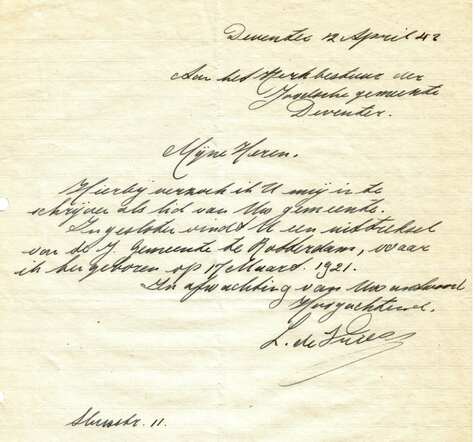 Deventer 12 April 42
Aan het Kerkbestuur der
Joodsche gemeente
Deventer.
Mijne Heren.
Hierbij verzoek ik U mij in te
schrijven als lid van Uw gemeente.
Ingesloten vindt U een uittreksel
van de J. Gemeente te Rotterdam, waar
ik ben geboren op 17 Maart 1921.
In afwachting van Uw antwoord
Hoogachtend.
L. de Vries
11.